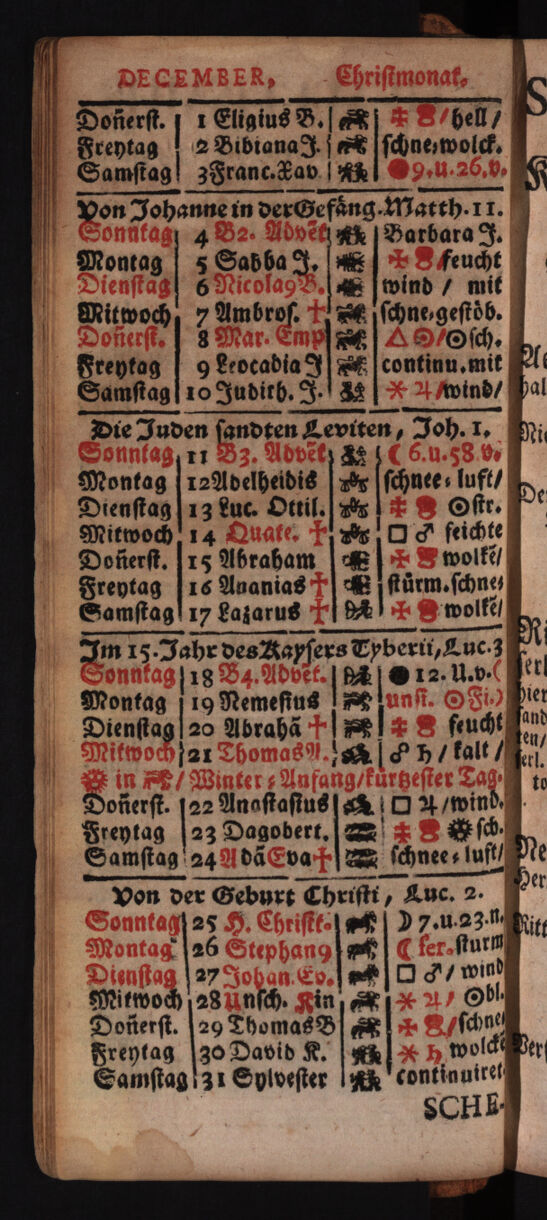 DECEMBER, Christmonat.
Don̄erst. 1 Eligius B. hell/
Freytag 2 Bibiana J. schne⸗wolck.
Samstag 3 Franc. Xav 9. u. 26. v.
Von Johanne in der Gefäng. Matth. 11.
Sonntag 4 B2. Advēt Barbara J.
Montag 5 Sabba J. feucht
Dienstag 6 Nicola9 B. wind / mit
Mitwoch 7 Ambros. ☩ schne⸗gestöb.
Don̄erst. 8 Mar. Emp △ ☉/☉sch.
Freytag 9 Leocadia J continu. mit
Samstag 10 Judith. J. ⚹ ♃/wind/
Die Juden sandten Leviten, Joh. 1.
Sonntag 11 B3. Advēt ☾ 6. u. 58. v.
Montag 12 Adelheidis schnee⸗ luft/
Dienstag 13 Luc. Ottil. ☉str.
Mitwoch 14 Quate. ☩ □ ♂ feichte
Don̄erst. 15 Abraham wolkē/
Freytag 16 Ananias ☩ stürm. schne⸗
Samstag 17 Lazarus ☩ wolkē/
Im 15. Jahr des Kaysers Tyberii, Luc. 3
Sonntag 18 B4. Advēt. ● 12. U. v. (
Montag 19 Nemesius unsi. ☉Fi.)
Dienstag 20 Abrahā ☩ feucht
Mitwoch 21 Thomas A. ☍ ♄ / kalt /
in / Winter⸗Anfang/kürtzester Tag.
Don̄erst. 22 Anastasius □ ♃/wind.
Freytag 23 Dagobert. sch.
Samstag 24 Adā Eva ☩ schnee⸗ luft/
Von der Geburt Christi, Luc. 2.
Sonntag 25 H. Christt. ☽ 7. u. 23. n.
Montag 26 Stephan9 ☾ fer. sturm
Dienstag 27 Johan. Ev. □ ♂/ wind
Mitwoch 28 Unsch. Kin ⚹ ♃/ ☉bl.
Don̄erst. 29 Thomas B /schne/
Freytag 30 David K. ⚹ ♄ wolckē
Samstag 31 Sylvester continuiret.
SCHE-